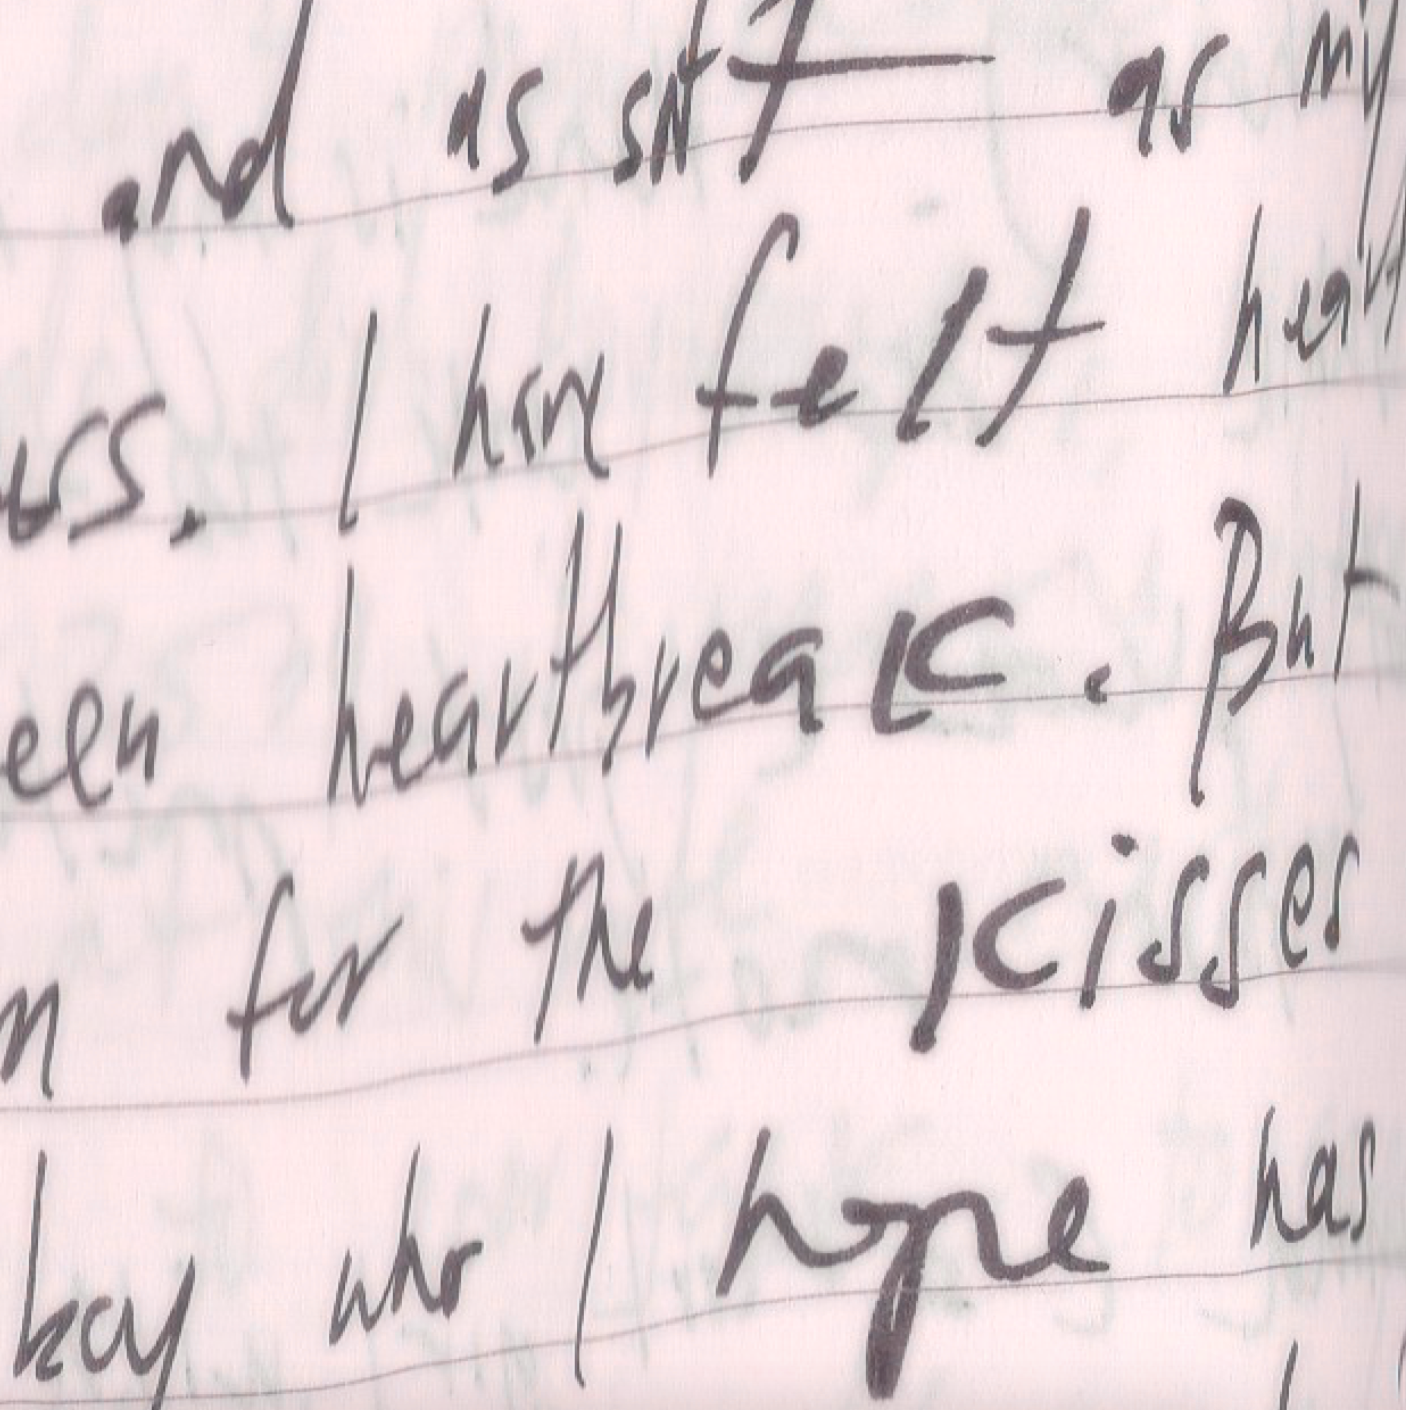 and as soft as my
I have felt heart
een heartbreak. But
n for the kisses
boy who I hope has